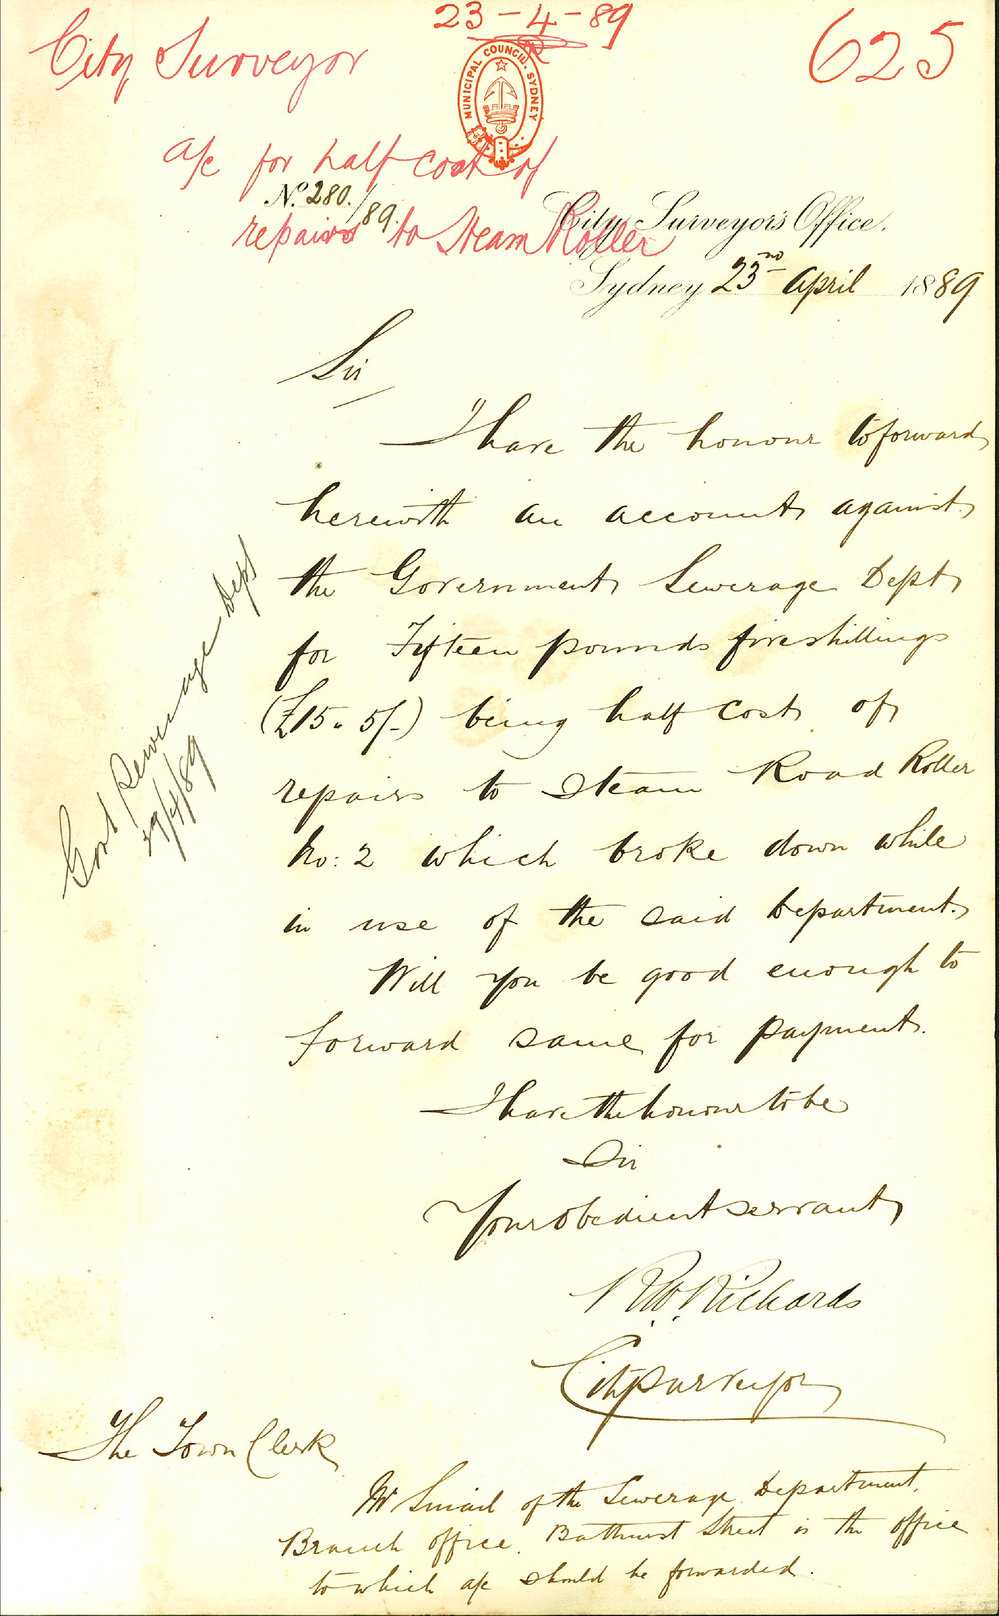 23-4-89
City Surveyor
625
MUNICIPAL COUNCIL SYDNEY
a/c for half cost of
repairs to Steam Roller
No. 280./89.
City Surveyor's Office.
Sydney 23rd April 1889
Sir
I have the honour to forward
herewith an account against
the Government Sewerage Dept
for Fifteen pounds five shillings
(£15. 5/-) being half cost of
repairs to Steam Road Roller
No: 2 which broke down while
in use of the said Department.
Will you be good enough to
forward same for payment.
I have the honour to be
Sir
Your obedient servant
R.W. Richards
City Surveyor
The Town Clerk
Mr Smail of the Sewerage Department,
Branch office, Bathurst Street is the office
to which a/c should be forwarded.
Govt Sewerage Dept
29/4/89